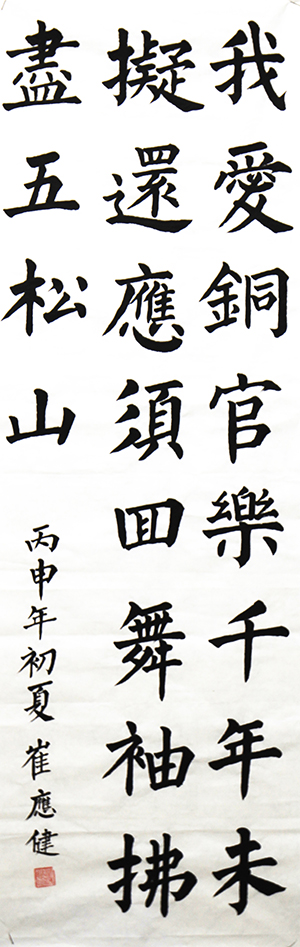 我愛銅官樂千年未
擬還應須回舞袖拂
盡五松山
丙申年初夏崔應健